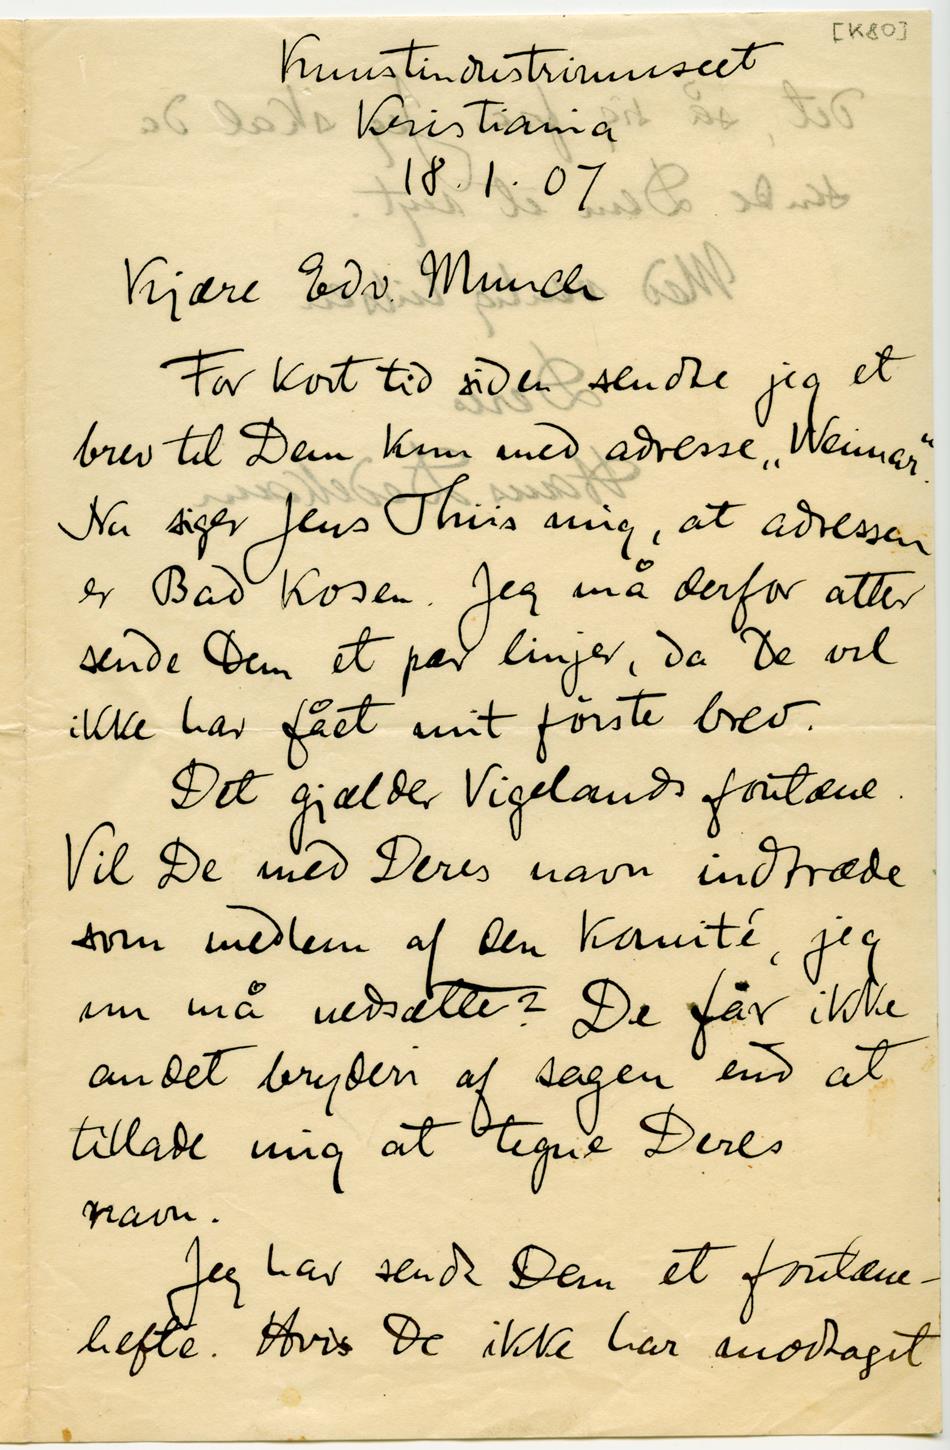 [K80]
Kunstindustrimuseet
Kristiania
18.1.07
Kjære Edv. Munch
For kort tid siden sendte jeg et
brev til Dem kun med adresse „Weimar“.
Nu siger Jens Thiis mig, at adressen
er Bad Kosen. Jeg må derfor atter
sende Dem et par linjer, da De vel
ikke har fået mit første brev.
Det gjælder Vigelands fontæne.
Vil De med Deres navn indtræde
som medlem af den komité, jeg
nu må nedsætte? De får ikke
andet bryderi af sagen end at
tillade mig at tegne Deres
navn.
Jeg har sendt Dem et fontæne-
hefte. Hvis De ikke har modtaget